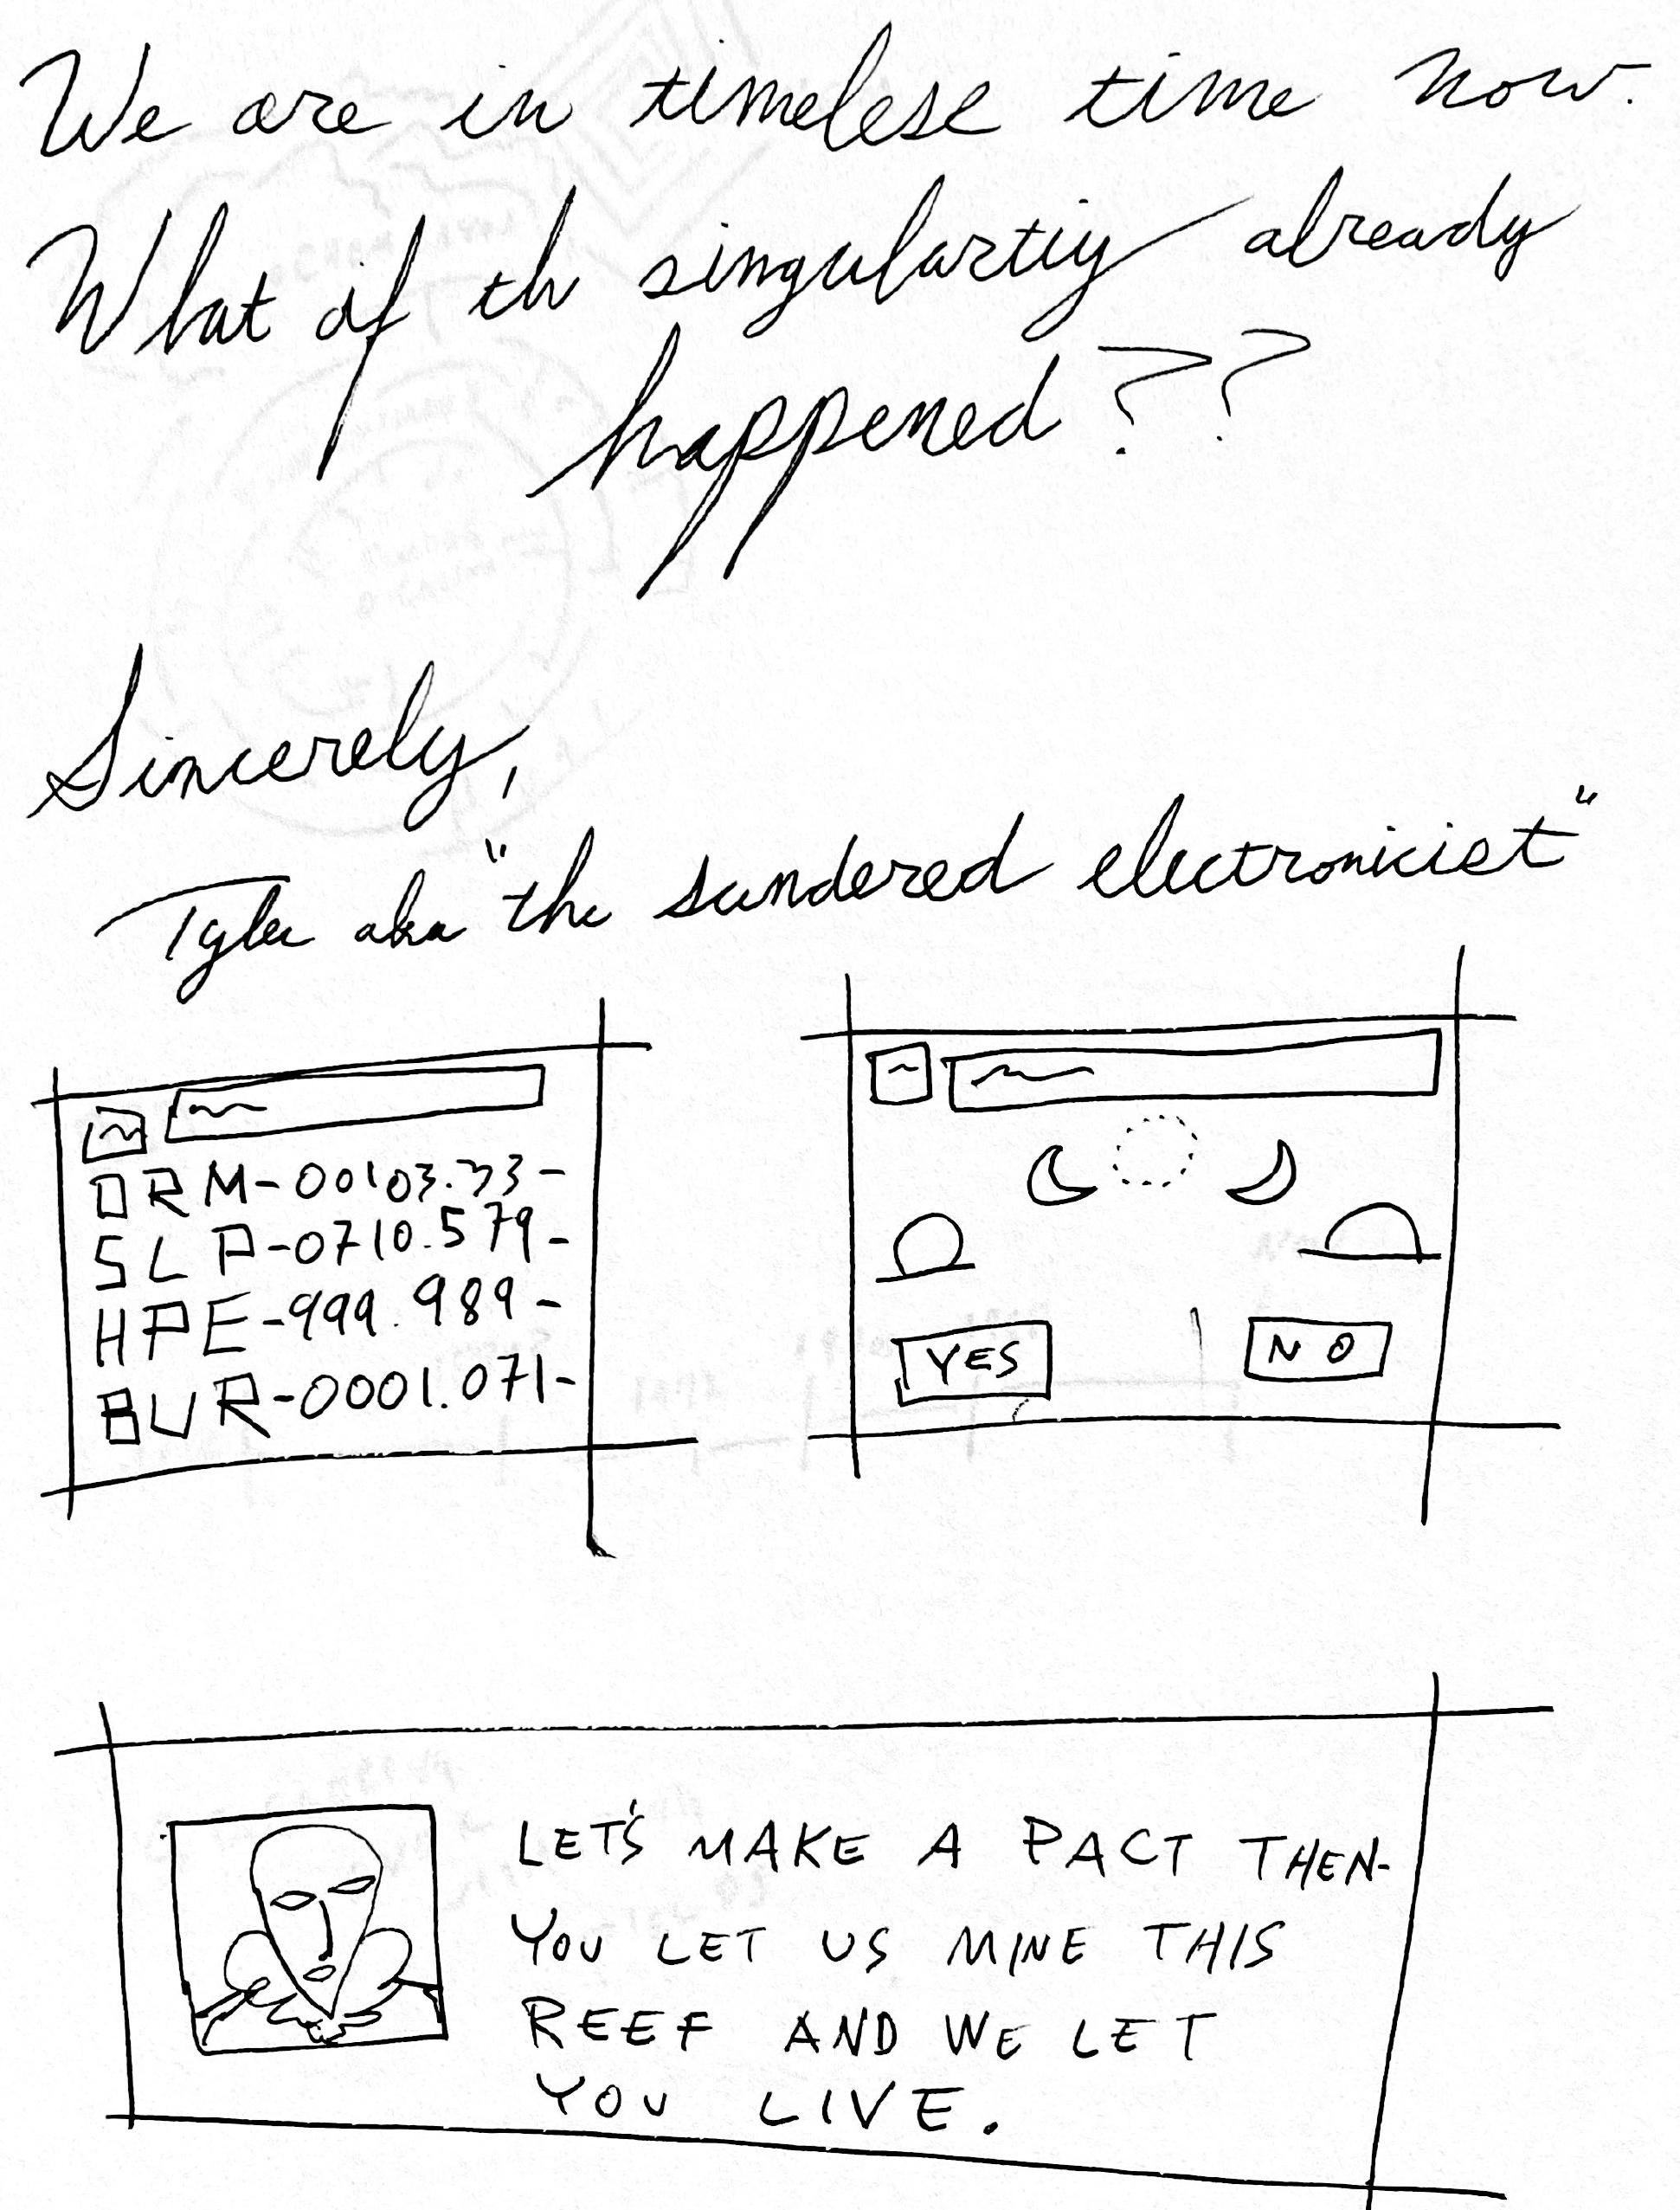 We are in timelese time now.
What if th singulartiy already
happened??
Sincerely,
Tyler aka "the sundered electronicist"
DRM-00103.33-
SLP-0710.579-
HPE-999.989-
BUR-0001.071-
YES
NO
LET'S MAKE A PACT THEN-
YOU LET US MINE THIS
REEF AND WE LET
YOU LIVE.